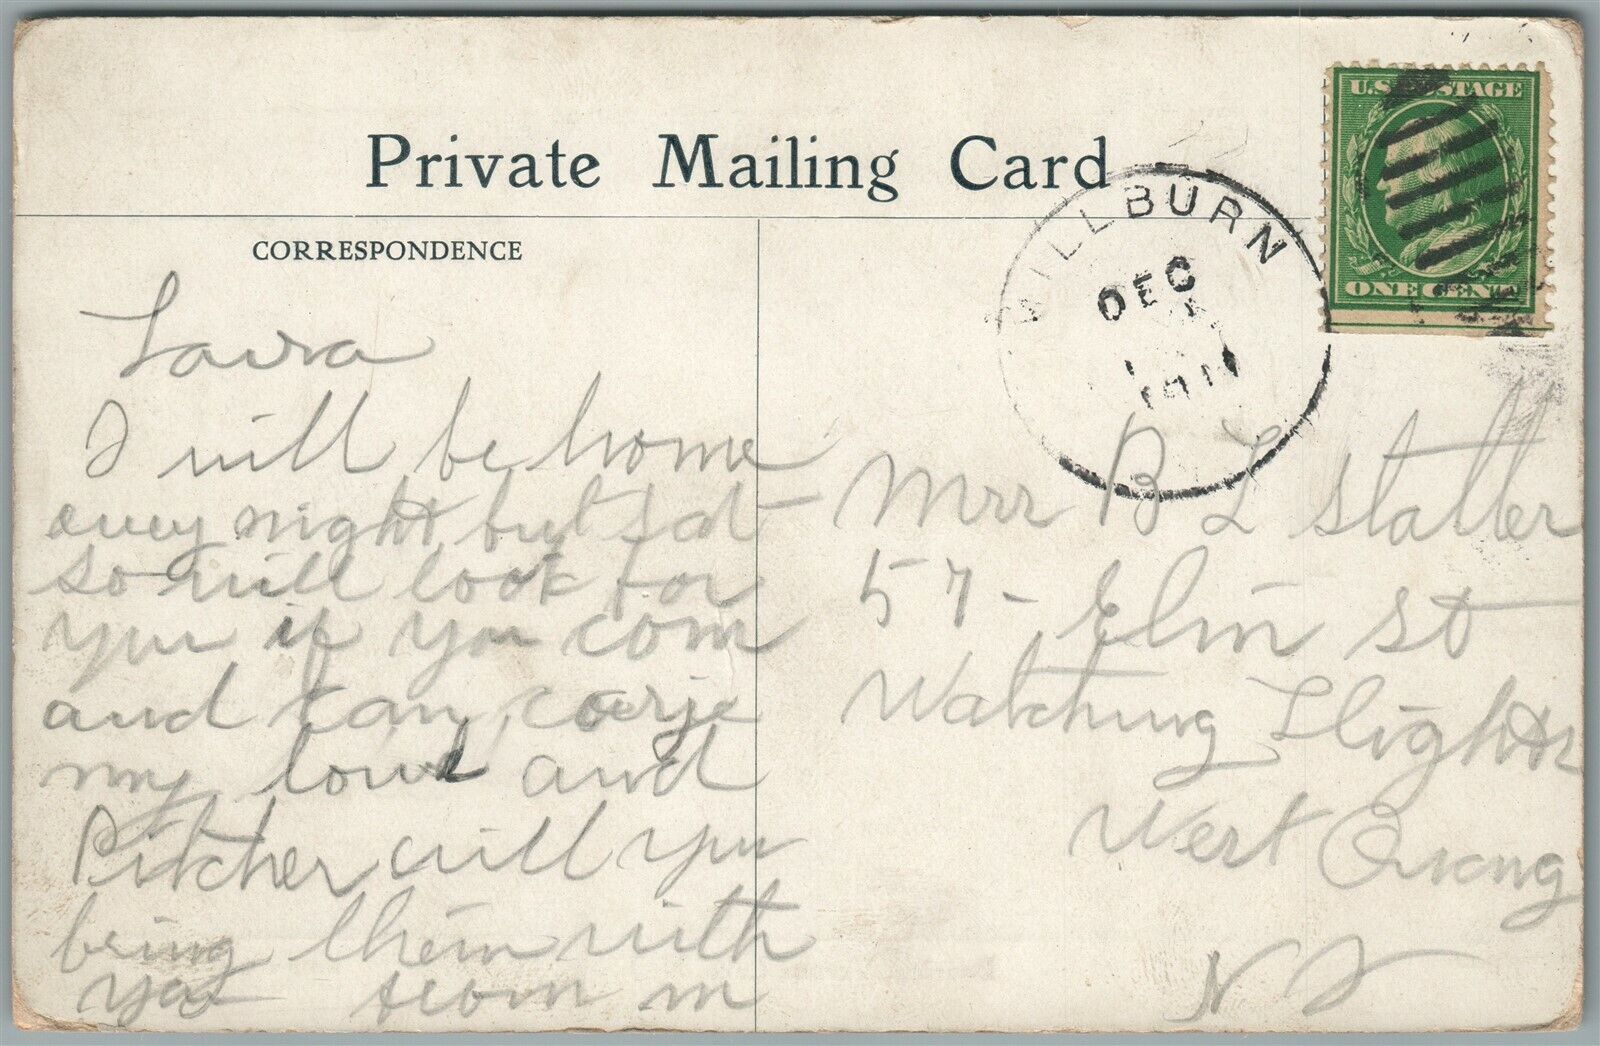 Private Mailing Card
CORRESPONDENCE
U.S. POSTAGE
ONE CENT
MILLBURN
DEC
1911
Laura
I will be home
every night but Sat
so will look for
you if you com
and can, carje
my bowl and
Pitcher will you
bring them with
you from m
Mrs B L Statler
57 - Elm St
Watchung Hights
West Orang
N J